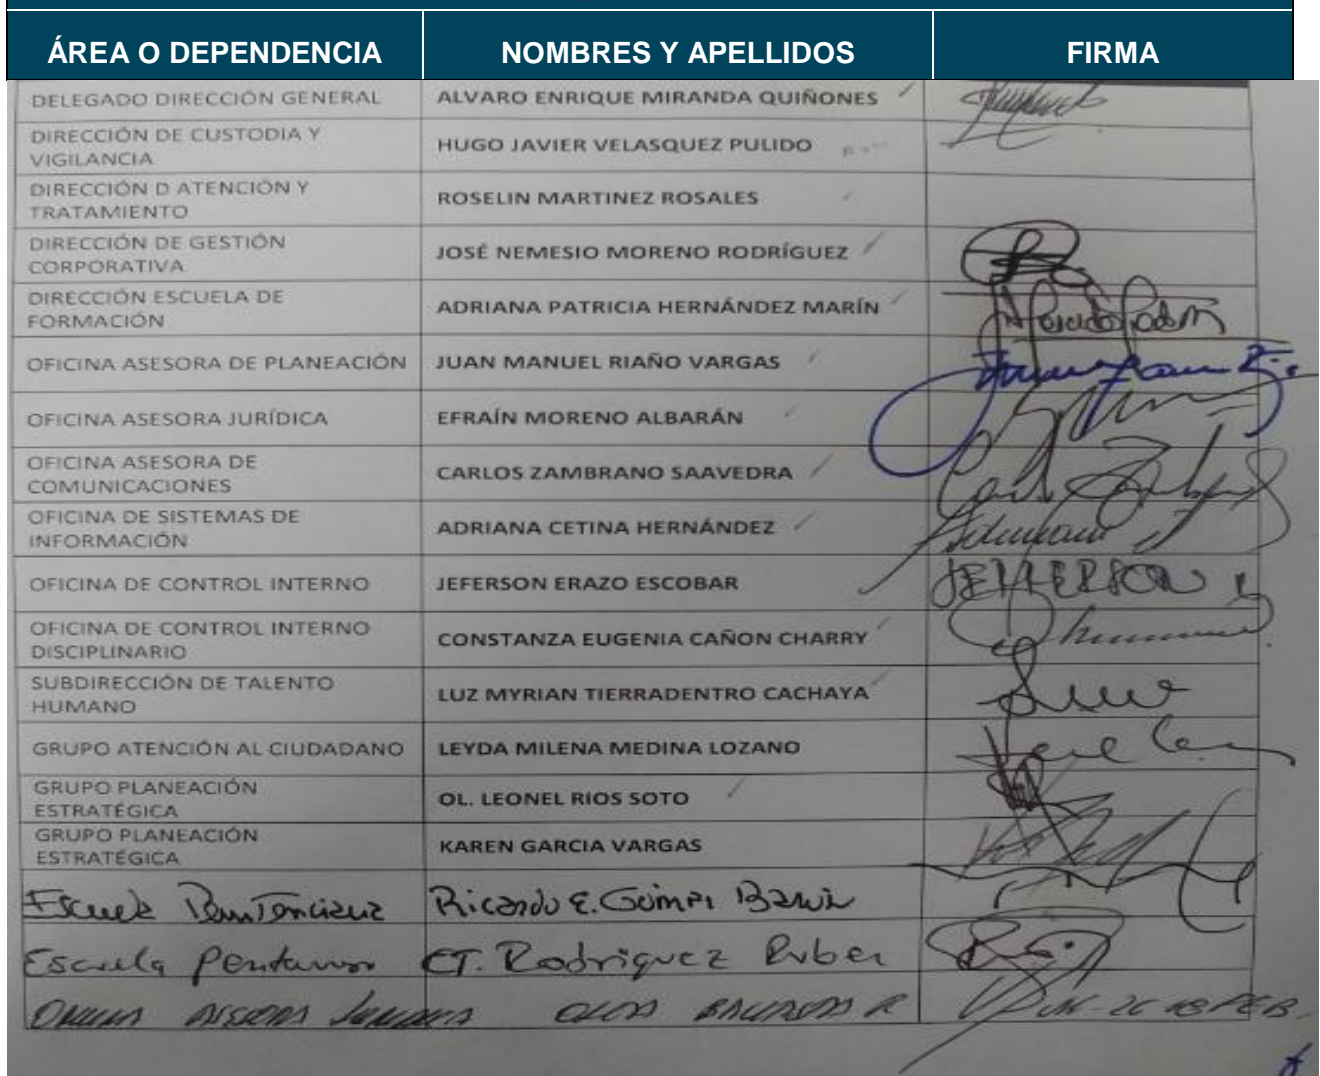 ÁREA O DEPENDENCIA NOMBRES Y APELLIDOS FIRMA
DELEGADO DIRECCIÓN GENERAL ALVARO ENRIQUE MIRANDA QUIÑONES
DIRECCIÓN DE CUSTODIA Y
VIGILANCIA
HUGO JAVIER VELASQUEZ PULIDO
DIRECCIÓN D ATENCIÓN Y
TRATAMIENTO
ROSELIN MARTINEZ ROSALES
DIRECCIÓN DE GESTIÓN
CORPORATIVA
JOSÉ NEMESIO MORENO RODRÍGUEZ
DIRECCIÓN ESCUELA DE
FORMACIÓN
ADRIANA PATRICIA HERNÁNDEZ MARÍN
OFICINA ASESORA DE PLANEACIÓN JUAN MANUEL RIAÑO VARGAS
OFICINA ASESORA JURÍDICA EFRAÍN MORENO ALBARÁN
OFICINA ASESORA DE
COMUNICACIONES
CARLOS ZAMBRANO SAAVEDRA
OFICINA DE SISTEMAS DE
INFORMACIÓN
ADRIANA CETINA HERNÁNDEZ
OFICINA DE CONTROL INTERNO JEFERSON ERAZO ESCOBAR JEFFERSON
OFICINA DE CONTROL INTERNO
DISCIPLINARIO
CONSTANZA EUGENIA CAÑON CHARRY
SUBDIRECCIÓN DE TALENTO
HUMANO
LUZ MYRIAN TIERRADENTRO CACHAYA
GRUPO ATENCIÓN AL CIUDADANO LEYDA MILENA MEDINA LOZANO
GRUPO PLANEACIÓN
ESTRATÉGICA
OL. LEONEL RIOS SOTO
GRUPO PLANEACIÓN
ESTRATÉGICA
KAREN GARCIA VARGAS
Ricardo E.
Escuela CT. Rodriguez Ruber